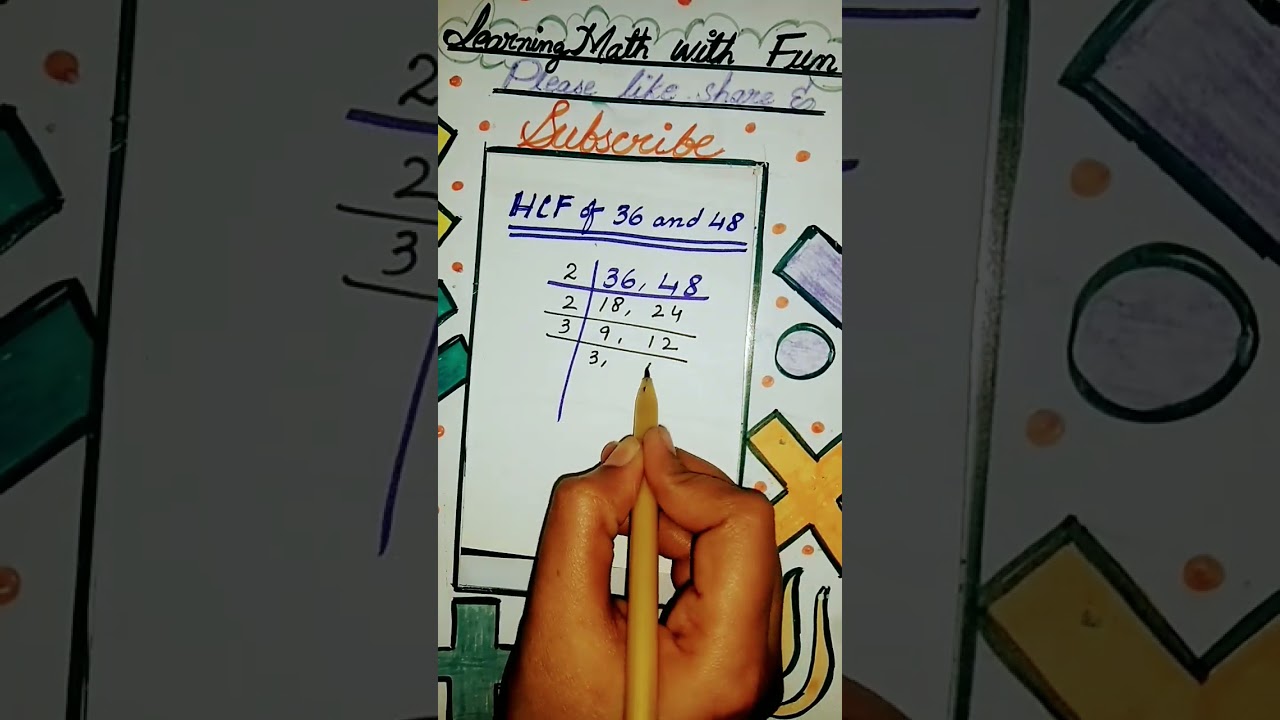 Learning Math with Fun
Please like share &
Subscribe
HCF of 36 and 48
2 | 36, 48
2 | 18, 24
3 | 9, 12
3,
2
2
3